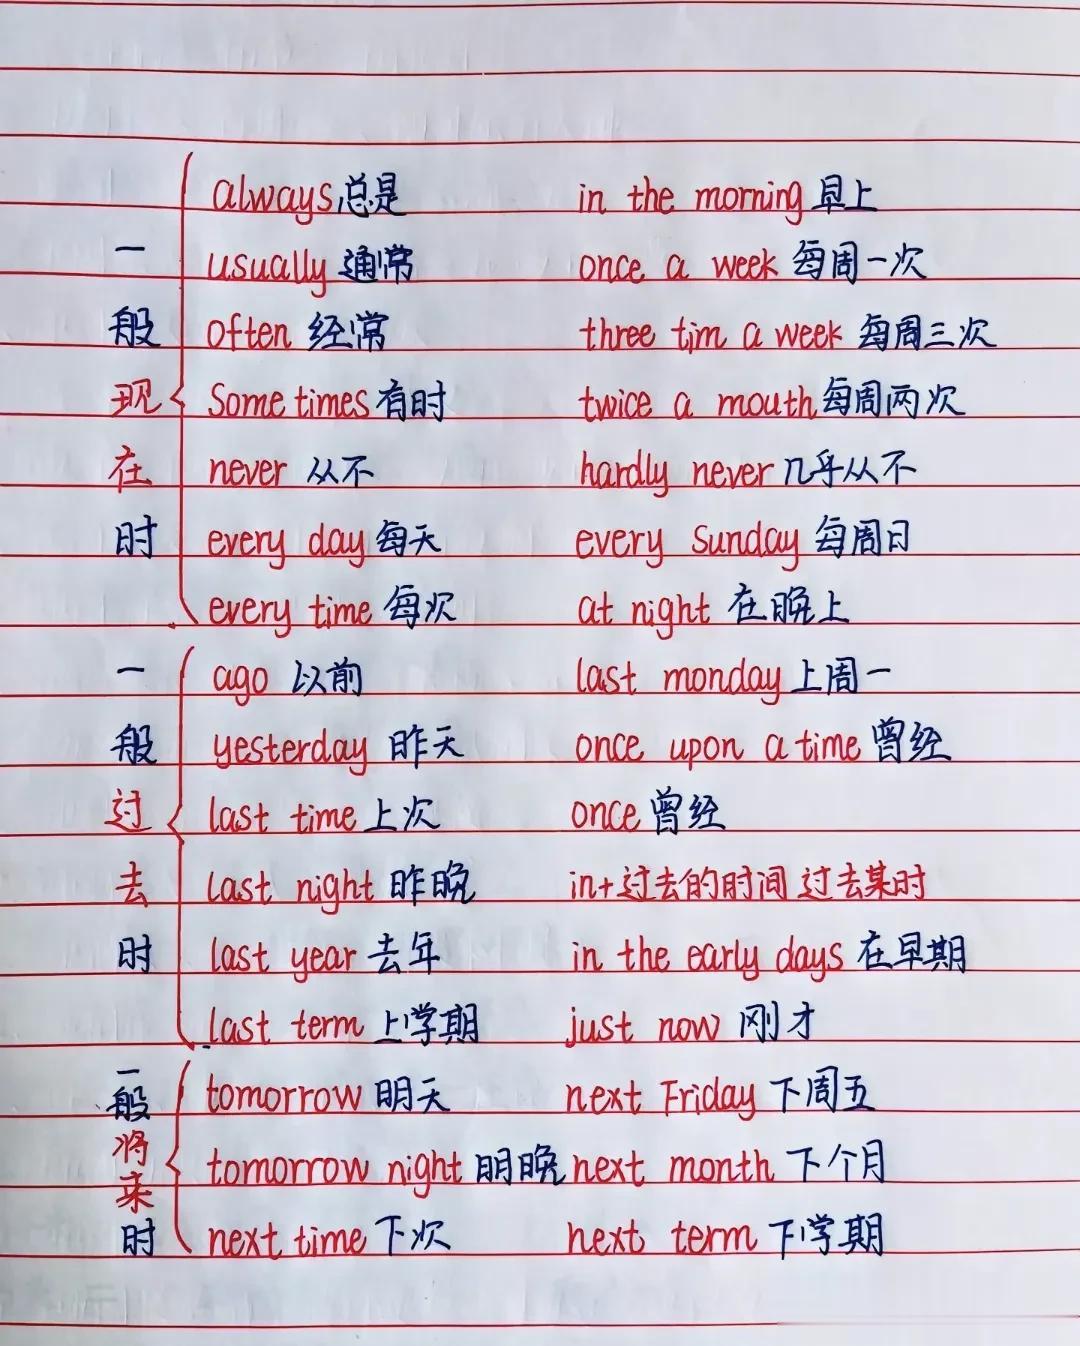 一般现在时
always 总是 in the morning 早上
usually 通常 once a week 每周一次
often 经常 three tim a week 每周三次
Some times 有时 twice a mouth 每周两次
never 从不 hardly never 几乎从不
every day 每天 every Sunday 每周日
every time 每次 at night 在晚上
一般过去时
ago 以前 last monday 上周一
yesterday 昨天 once upon a time 曾经
last time 上次 once 曾经
last night 昨晚 in+过去的时间 过去某时
last year 去年 in the early days 在早期
last term 上学期 just now 刚才
一般将来时
tomorrow 明天 next Friday 下周五
tomorrow night 明晚 next month 下个月
next time 下次 next term 下学期